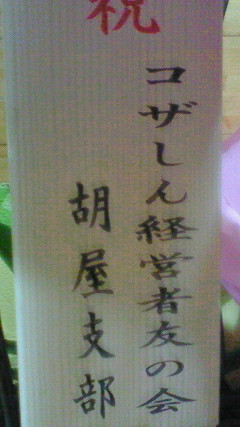 祝
コザしん経営者友の会
胡屋支部